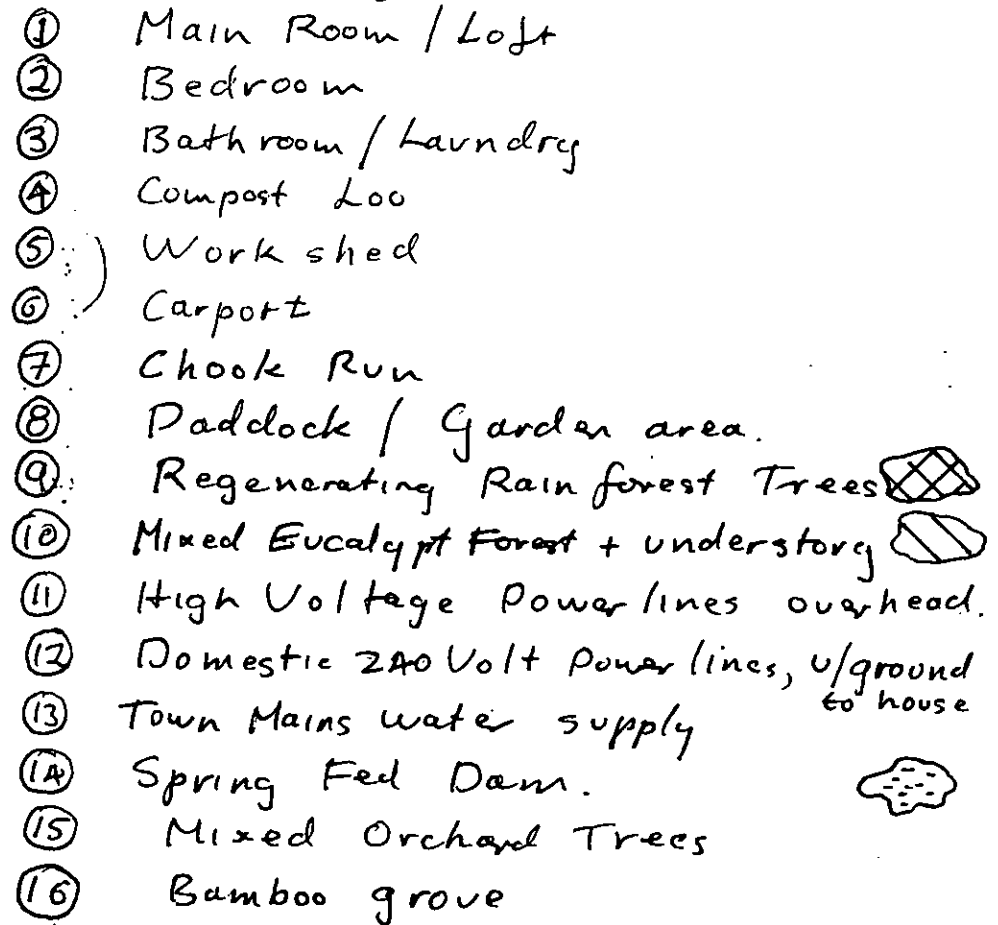 ① Main Room / Loft
② Bedroom
③ Bathroom / Laundry
④ Compost Loo
⑤ Work shed
⑥ Carport
⑦ Chook Run
⑧ Paddock / Garden area.
⑨ Regenerating Rainforest Trees
⑩ Mixed Eucalypt Forest + understory
⑪ High Voltage Powerlines overhead.
⑫ Domestic 240 Volt Power lines, u/ground
to house
⑬ Town Mains water supply
⑭ Spring Fed Dam.
⑮ Mixed Orchard Trees
⑯ Bamboo grove